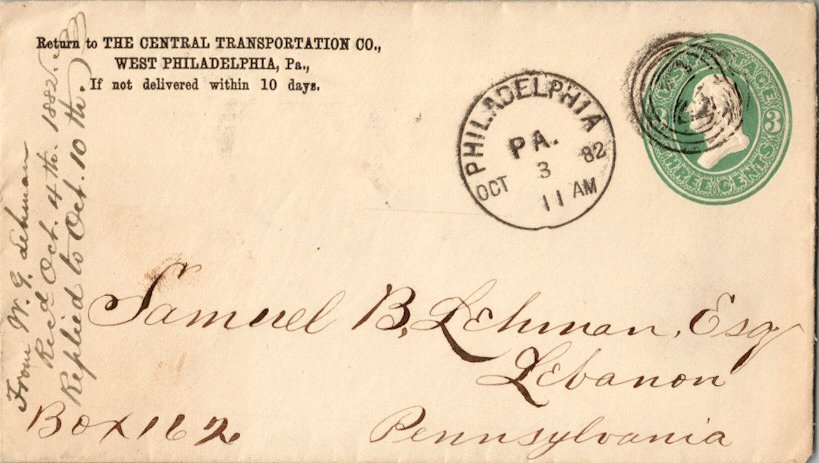 Return to THE CENTRAL TRANSPORTATION CO.,
WEST PHILADELPHIA, Pa.,
If not delivered within 10 days.
PHILADELPHIA
PA.
OCT 3 82
11 AM
U.S. POSTAGE
3 3
THREE CENTS
From W. G. Lehman
Recd Oct. 4th. 1882.
Replied to Oct. 10th.
Samuel B. Lehman, Esq
Lebanon
Box 162
Pennsylvania